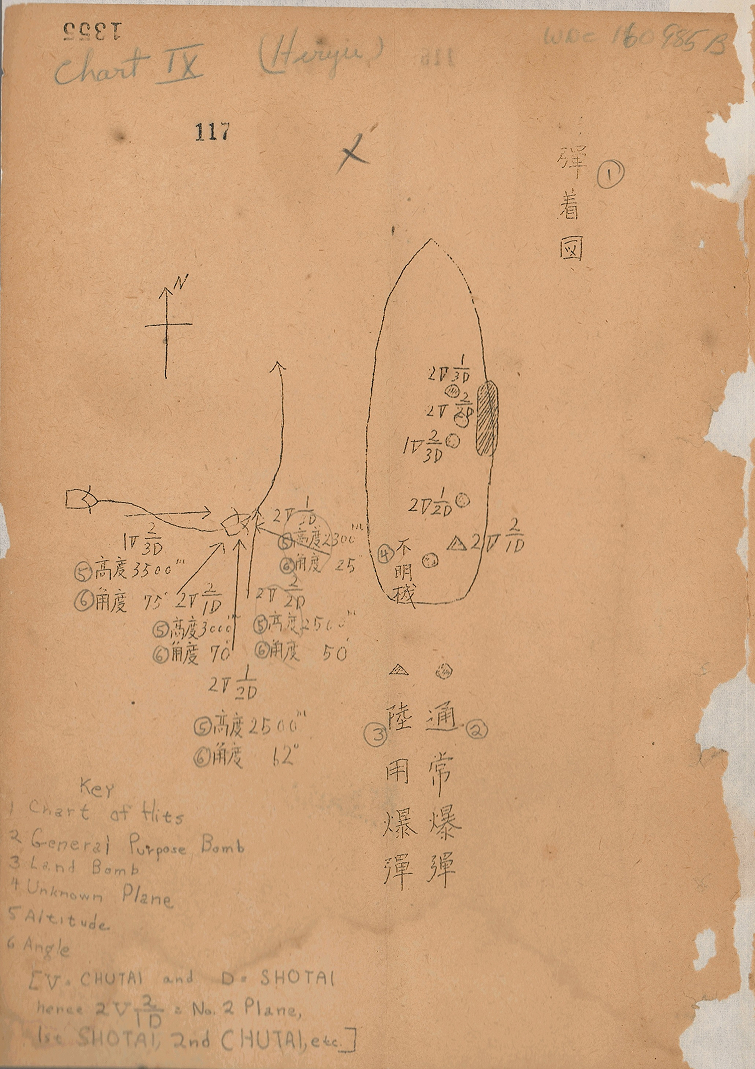 1355
Chart IX (Hiryu)
WDC 160985B
117
彈着図 ①
N
2∇ 1/3D
2∇ 2/2D
1∇ 2/3D
2∇ 1/2D
△ 2∇ 2/1D
④ 不明機
1∇ 2/3D
⑤高度3500m
⑥角度 75°
2∇ 2/1D
⑤高度3000m
⑥角度 70°
2∇ 1/2D
⑤高度2500m
⑥角度 62°
⑤高度2300m
⑥角度 25°
2∇ 2/2D
⑤高度2500m
⑥角度 50°
通常爆彈 ②
△ 陸用爆彈 ③
Key
1 Chart of Hits
2 General Purpose Bomb
3 Land Bomb
4 Unknown Plane
5 Altitude
6 Angle
[∇= CHUTAI and D= SHOTAI
hence 2∇ 2/1D = No. 2 Plane,
1st SHOTAI, 2nd CHUTAI, etc.]